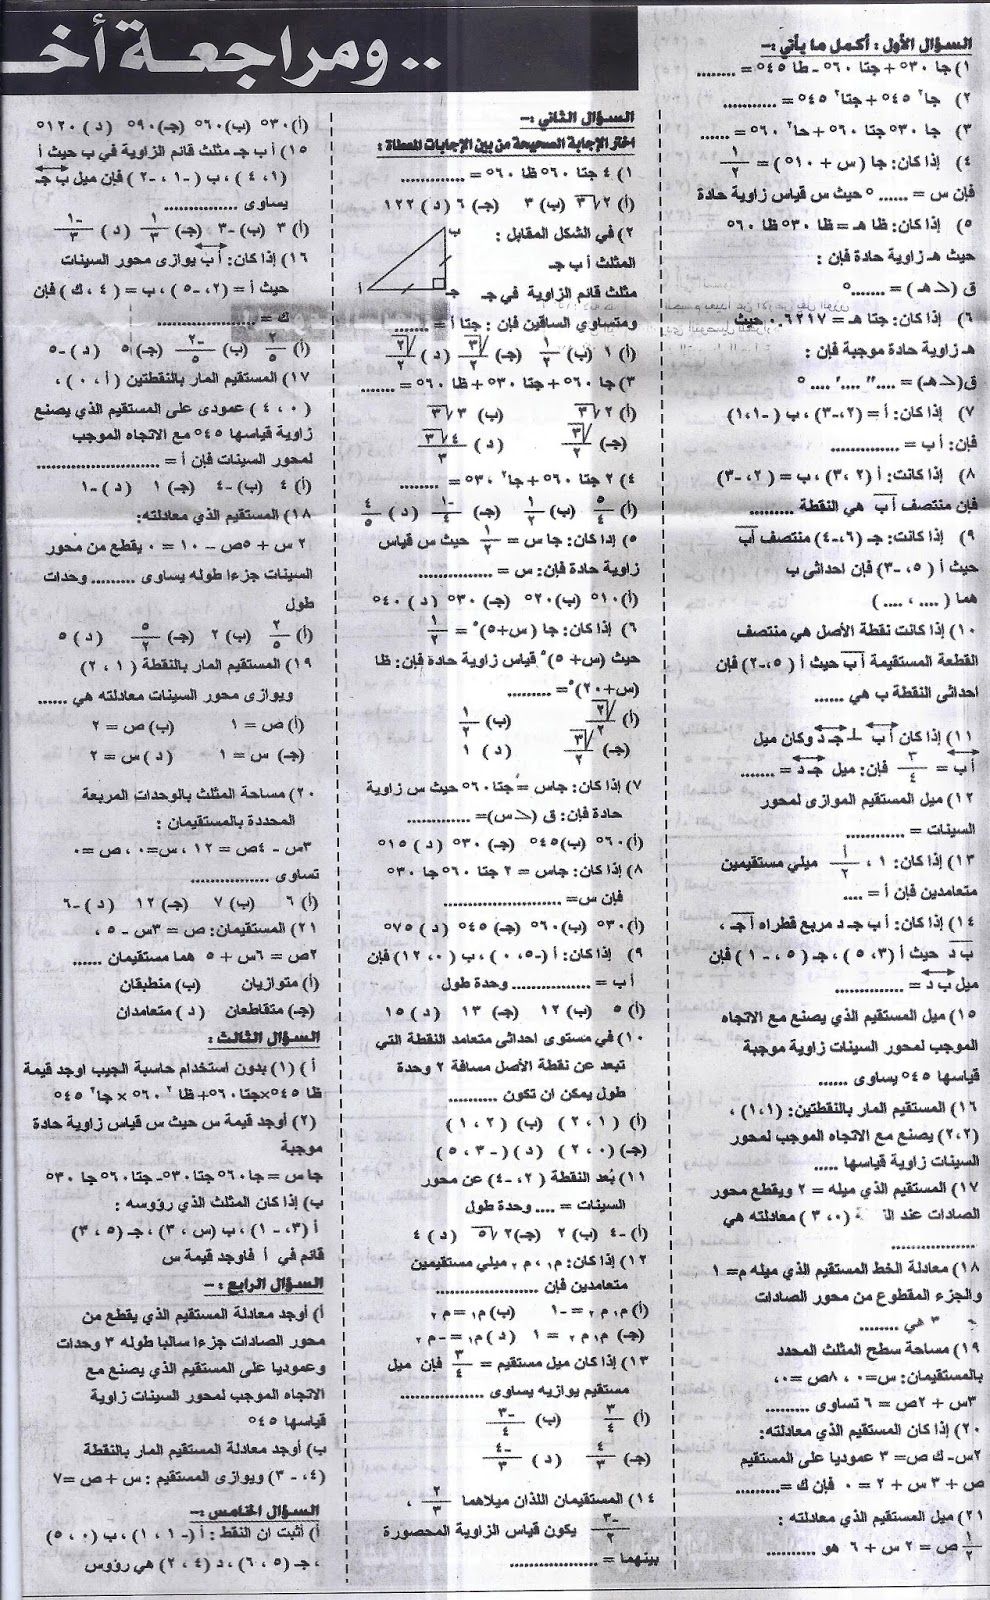 .. ومراجعة أخـ
السؤال الأول : أكمل ما يأتي :-
١) جا ٣٠° + جتا ٦٠° - طا ٤٥° = ........
٢) جا٢ ٤٥° + جتا٢ ٤٥° = ...........
٣) جا ٣٠° جتا ٦٠° + جا٢ ٦٠° = ......
٤) إذا كان : جا (س + ١٠°) = ١/٢
فإن س = ...... ° حيث س قياس زاوية حادة
٥) إذا كان: ظا هـ = ظا ٣٠° ظا ٦٠°
حيث هـ زاوية حادة فإن :
ق (> هـ) = .......°
٦) إذا كان: جتا هـ = ٠.٦٢١٧ حيث
هـ زاوية حادة موجبة فإن :
ق(> هـ) = ....ً ....َ .... °
٧) إذا كان: أ = (٢، -٣) ، ب (-١،١)
فإن: أ ب = ..............
٨) إذا كانت: أ (٢ ،٣) ، ب = (٢، -٣)
فإن منتصف أب هي النقطة .........
٩) إذا كانت: جـ (٦، -٤) منتصف أب
حيث أ (٥، -٣) فإن احداثى ب
هما ( .... ، .... )
١٠) إذا كانت نقطة الأصل هي منتصف
القطعة المستقيمة أب حيث أ (٥، -٢) فإن
احداثى النقطة ب هي ......
١١) إذا كان أب ⊥ جـ د وكان ميل
أب = ٣/٤ فإن: ميل جـ د = .......
١٢) ميل المستقيم الموازى لمحور
السينات = ...........
١٣) إذا كان: ١ ، أ/٢ ميلي مستقيمين
متعامدين فإن أ = ....
١٤) إذا كان: أ ب جـ د مربع قطراه أجـ ،
ب د حيث أ (٣، ٥) ، جـ (٥ ، -١) فإن
ميل ب د = ..............
١٥) ميل المستقيم الذي يصنع مع الاتجاه
الموجب لمحور السينات زاوية موجبة
قياسها ٤٥° يساوى ......
١٦) المستقيم المار بالنقطتين: (١،١) ،
(٢،٢) يصنع مع الاتجاه الموجب لمحور
السينات زاوية قياسها .....
١٧) المستقيم الذي ميله = ٢ ويقطع محور
الصادات عند (٠، ٣) معادلته هي
.................
١٨) معادلة الخط المستقيم الذي ميله م= ١
والجزء المقطوع من محور الصادات
٣ هي ........
١٩) مساحة سطح المثلث المحدد
بالمستقيمان: س=٠ ، ص=٠،
٣س + ٢ص = ٦ تساوى .........
٢٠) إذا كان المستقيم الذي معادلته:
٢س- ك ص= ٣ عموديا على المستقيم
ص + ٣ س + ٢ = ٠ فإن ك =.........
٢١) ميل المستقيم الذي معادلته :
١/٢ ص = ٢ س + ٦ هو ..........
السؤال الثاني :-
اختر الإجابة الصحيحة من بين الإجابات المعطاة :
١) ٤ جتا ٦٠° ظا ٦٠° = .............
(أ) ٢√٣ (ب) ٣ (جـ) ٦ (د) ١٢٢
٢) في الشكل المقابل :
المثلث أ ب جـ
مثلث قائم الزاوية في جـ
ومتساوي الساقين فإن : جتا أ = .......
ب
أ
جـ
(أ) ١ (ب) ١/٢ (جـ) √٣/٢ (د) √٢/٢
٣) جا ٦٠° + جتا ٣٠° + ظا ٦٠° = .......
(أ) ٢√٣ (ب) ٣√٣
(جـ) √٣/٢ (د) ٤√٣/٣
٤) ٢ جتا ٦٠° + جا٢ ٣٠° = ........
(أ) ٥/٤ (ب) ١/٢ (جـ) -١/٤ (د) ٤/٥
٥) إذا كان: جا س = ١/٢ حيث س قياس
زاوية حادة فإن: س = ..............
(أ) ١٠° (ب) ٢٠° (جـ) ٣٠° (د) ٤٠°
٦) إذا كان: جا (س+٥)° = ١/٢
حيث (س+ ٥)° قياس زاوية حادة فإن: ظا
(س+٢٠)°= .........
(أ) √٢/٢ (ب) ١/٢
(جـ) √٣/٢ (د) ١
٧) إذا كان: جاس = جتا ٦٠° حيث س زاوية
حادة فإن: ق (> س)= .............
(أ) ٦٠° (ب) ٤٥° (جـ) ٣٠° (د) ١٥°
٨) إذا كان: جاس = ٢ جتا ٦٠° جا ٣٠°
فإن س= ..................
(أ) ٣٠° (ب) ٦٠° (جـ) ٤٥° (د) ٧٥°
٩) إذا كان: أ (-٥، ٠) ، ب (٠ ، ١٢) فإن
أ ب = ............... وحدة طول
(أ) ٥ (ب) ١٢ (جـ) ١٣ (د) ١٥
١٠) في مستوى احداثى متعامد النقطة التي
تبعد عن نقطة الأصل مسافة ٢ وحدة
طول يمكن ان تكون .........
(أ) (١ ، ٢) (ب) (٢ ، ١)
(جـ) (٠، ٢) (د) (-٣ ، ٥)
١١) بُعد النقطة (٢، -٤) عن محور
السينات = .... وحدة طول
(أ) -٤ (ب) ٢ (جـ) ٢√٥ (د) ٤
١٢) إذا كان: م١ ، م٢ ميلي مستقيمين
متعامدين فإن ...................
(أ) م١ م٢ = -١ (ب) م١ = م٢
(جـ) م١ م٢ = ١ (د) م١ = -م٢
١٣) إذا كان ميل مستقيم = ٣/٤ فإن ميل
مستقيم يوازيه يساوى ................
(أ) ٣/٤ (ب) -٣/٤
(جـ) ٤/٣ (د) -٤/٣
١٤) المستقيمان اللذان ميلاهما ٢/٣ ،
-٣/٢ يكون قياس الزاوية المحصورة
بينهما = .................
(أ) ٣٠° (ب) ٦٠° (جـ) ٩٠° (د) ١٢٠°
١٥) أ ب جـ مثلث قائم الزاوية في ب حيث أ
(١، ٤) ، ب (-١، -٢) فإن ميل ب جـ
يساوى ...............
(أ) ٣ (ب) -٣ (جـ) ١/٣ (د) -١/٣
١٦) إذا كان: أب يوازى محور السينات
حيث أ = (٢، -٥) ، ب = (٤ ، ك) فإن
ك = ...............
(أ) ٢/٥ (ب) -٢/٥ (جـ) ٥ (د) -٥
١٧) المستقيم المار بالنقطتين (أ ، ٠) ،
(٠ ، ٤) عمودى على المستقيم الذي يصنع
زاوية قياسها ٤٥° مع الاتجاه الموجب
لمحور السينات فإن أ = ......................
(أ) ٤ (ب) -٤ (جـ) ١ (د) -١
١٨) المستقيم الذي معادلته:
٢ س + ٥ص - ١٠ = ٠ يقطع من محور
السينات جزءا طوله يساوى ......... وحدات
طول
(أ) ٢/٥ (ب) ٢ (جـ) ٥/٢ (د) ٥
١٩) المستقيم المار بالنقطة (١ ، ٢)
ويوازى محور السينات معادلته هي ......
(أ) ص = ١ (ب) ص = ٢
(جـ) س = ١ (د) س = ٢
٢٠) مساحة المثلث بالوحدات المربعة
المحددة بالمستقيمان :
٣س - ٤ص = ١٢ ، س=٠ ، ص =٠
تساوى ................
(أ) ٦ (ب) ٧ (جـ) ١٢ (د) -٦
٢١) المستقيمان: ص = ٣س - ٥ ،
٢ص = ٦س + ٥ هما مستقيمان ......
(أ) متوازيان (ب) منطبقان
(جـ) متقاطعان (د) متعامدان
السؤال الثالث :
أ) (١) بدون استخدام حاسبة الجيب اوجد قيمة
ظا ٤٥°×جتا ٦٠°+ ظا٢ ٦٠° × جا٢ ٤٥°
(٢) أوجد قيمة س حيث س قياس زاوية حادة
موجبة
جا س = جا ٦٠° جتا ٣٠°- جتا ٦٠° جا ٣٠°
ب) إذا كان المثلث الذي رؤوسه :
أ (٣، -١) ، ب (س ، ٣) ، جـ (٥ ، ٣)
قائم في أ فاوجد قيمة س
السؤال الرابع :-
أ) أوجد معادلة المستقيم الذي يقطع من
محور الصادات جزءا سالبا طوله ٣ وحدات
وعموديا على المستقيم الذي يصنع مع
الاتجاه الموجب لمحور السينات زاوية
قياسها ٤٥°
ب) أوجد معادلة المستقيم المار بالنقطة
(٤، -٣) ويوازى المستقيم : س + ص =٧
السؤال الخامس :-
أ) أثبت ان النقط : أ (-١ ، ١) ، ب (٠ ، ٥)
، جـ (٥ ، ٦) ، د (٤ ، ٢) هي رؤوس